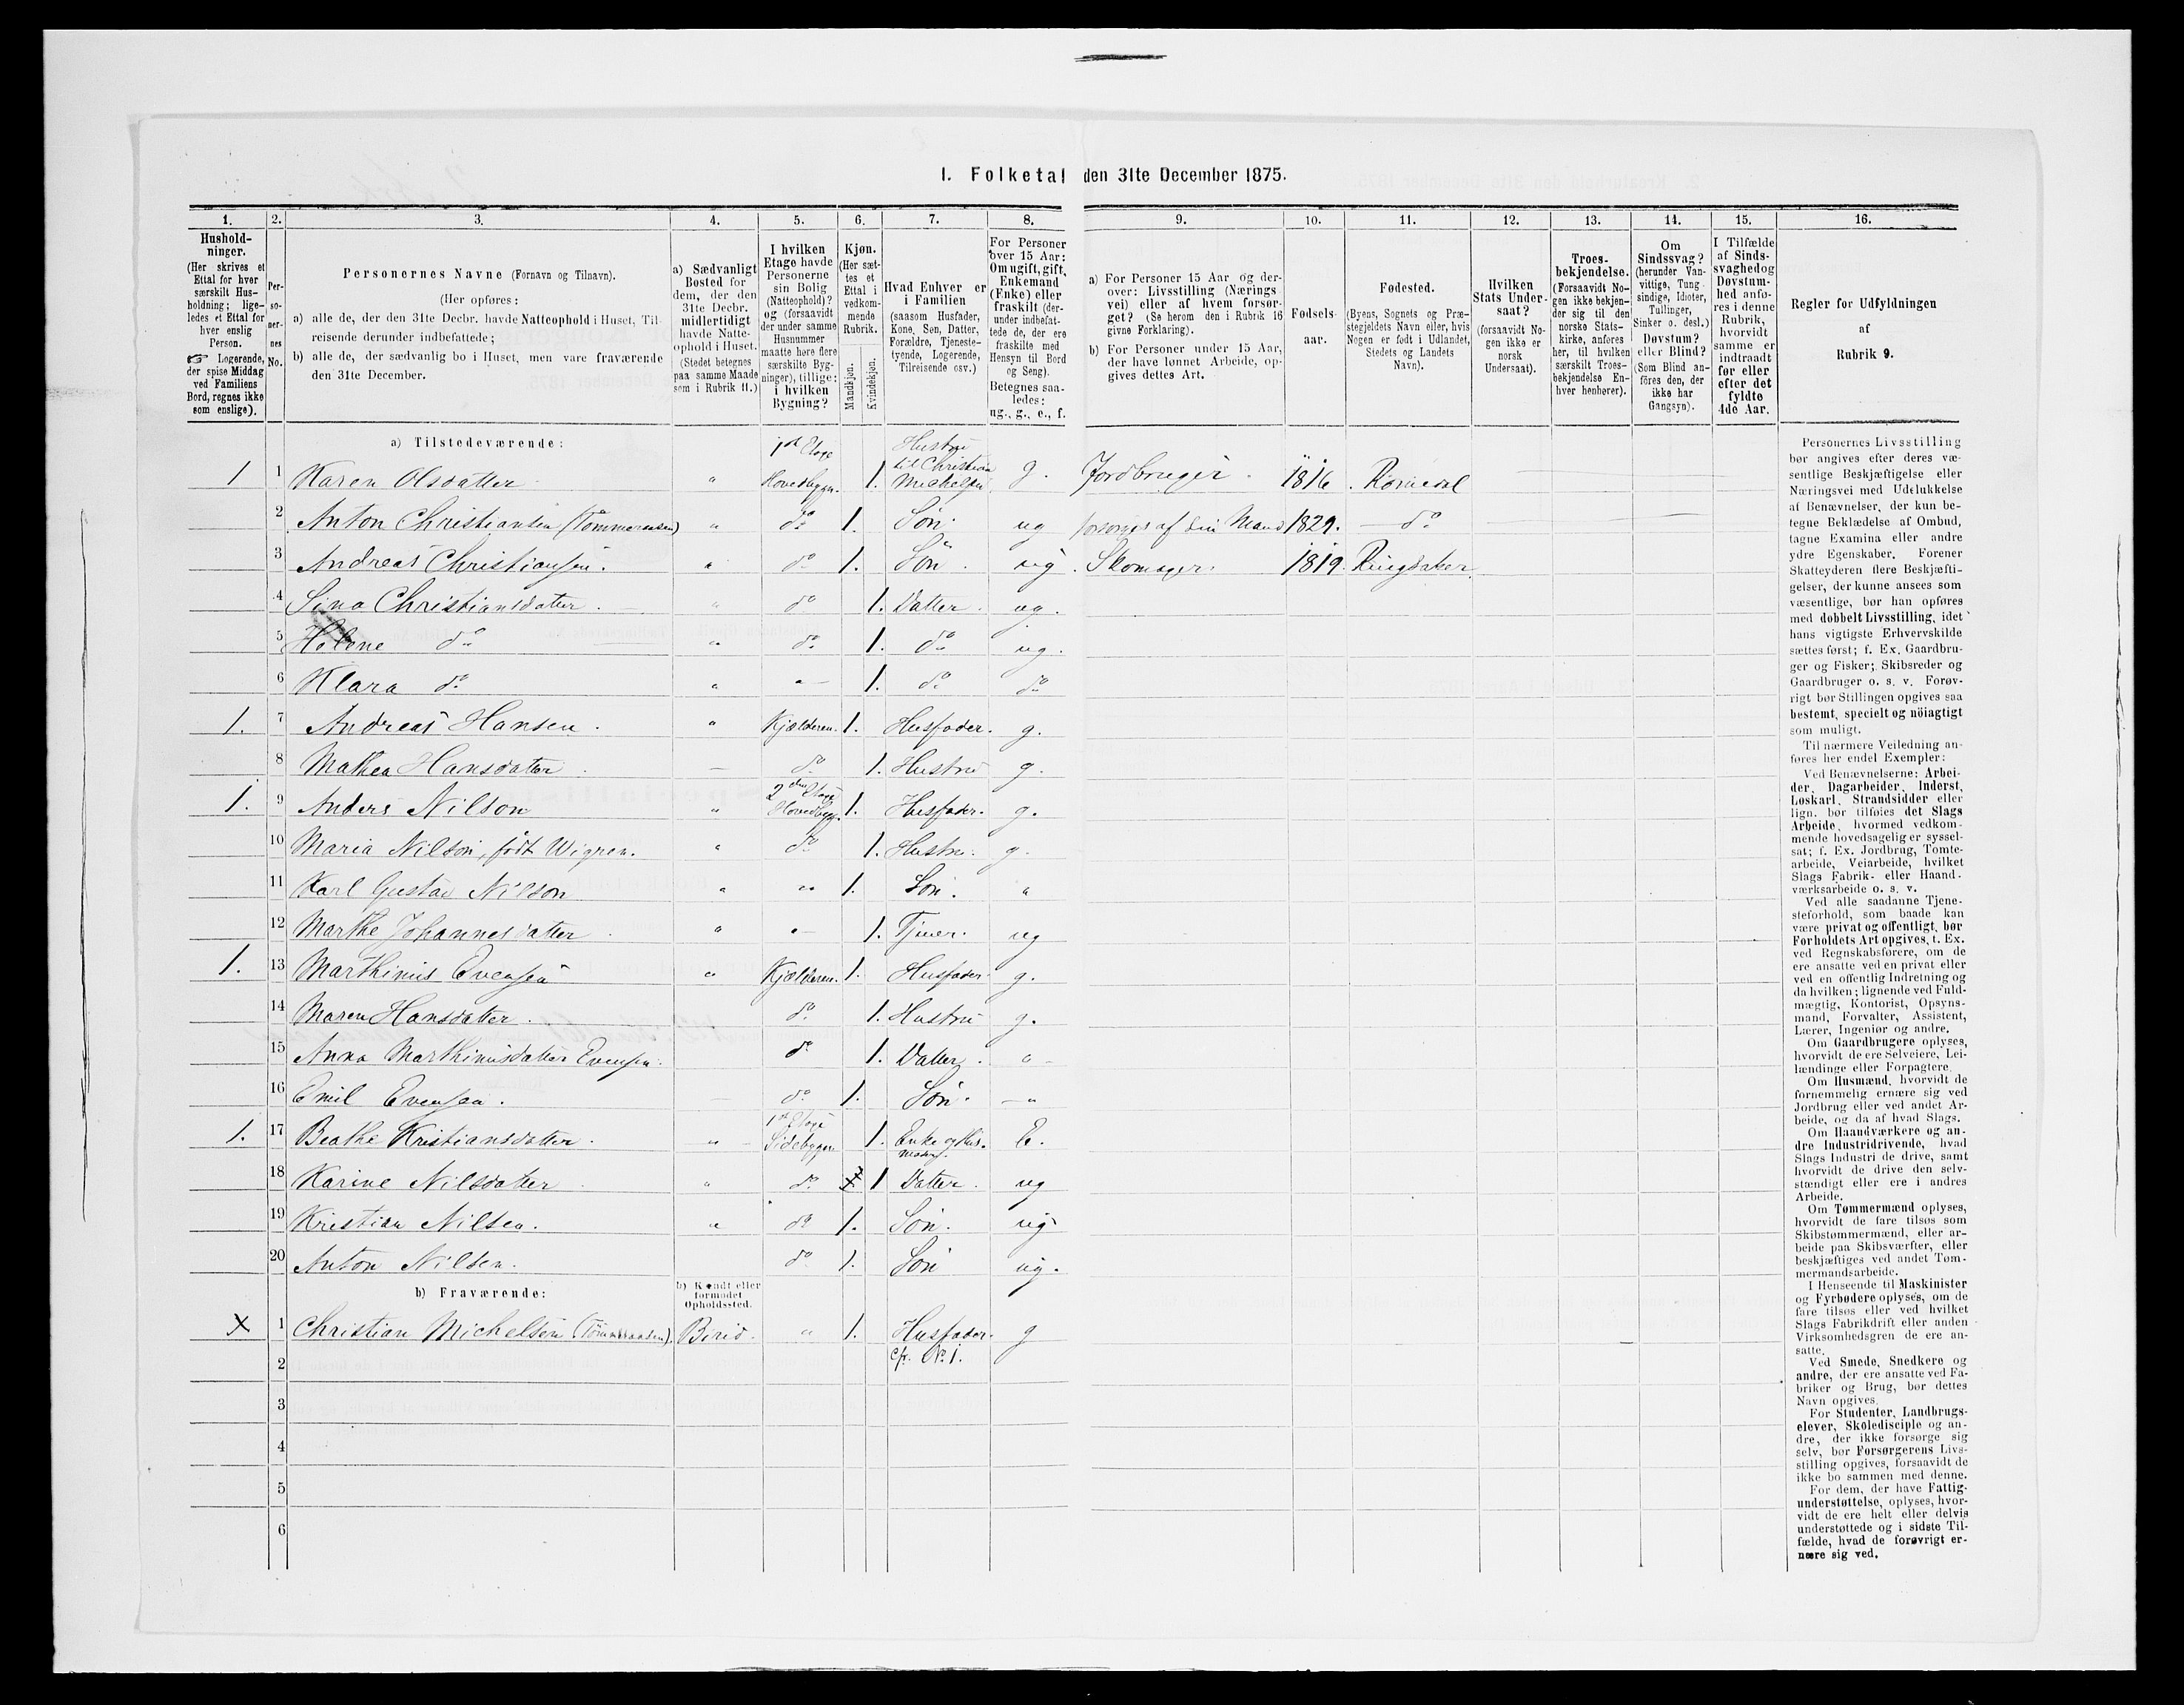 1. Folketal den 31te December 1875.
1. 2. 3. 4. 5. 6. 7. 8. 9. 10. 11. 12. 13. 14. 15. 16.
Hushold-
ninger.
(Her skrives et
Ettal for hver
særskilt Hus-
holdning; lige-
ledes et Ettal for
hver enslig
Person.
☞ Logerende,
der spise Middag
ved Familiens
Bord, regnes ikke
som enslige).
Per-
so-
ner-
nes
No.
Personernes Navne (Fornavn og Tilnavn).
(Her opføres:
a) alle de, der den 31te Decbr. havde Natteophold i Huset, Til-
reisende derunder indbefattede;
b) alle de, der sædvanlig bo i Huset, men vare fraværende
den 31te December.
a) Sædvanligt
Bosted for
dem, der den
31te Decbr.
midlertidigt
havde Natte-
ophold i Huset.
(Stedet betegnes
paa samme Maade
som i Rubrik 11.)
I hvilken
Etage havde
Personerne
sin Bolig
(Natteophold)?
og (forsaavidt
der under samme
Husnummer
maatte høre flere
særskilte Byg-
ninger), tillige:
i hvilken
Bygning?
Kjøn.
(Her sæt-
tes et
Ettal i
vedkom-
mende
Rubrik.
Mandkjøn.
Kvindekjøn.
Hvad Enhver er
i Familien
(saasom Husfader,
Kone, Søn, Datter,
Forældre, Tjeneste-
tyende, Logerende,
Tilreisende osv.)
For Personer
over 15 Aar:
Om ugift, gift,
Enkemand
(Enke) eller
fraskilt (der-
under indbefat-
tede de, der ere
fraskilte med
Hensyn til Bord
og Seng).
Betegnes saa-
ledes:
ug., g., e., f.
a) For Personer 15 Aar og der-
over: Livsstilling (Nærings
vei) eller af hvem forsør-
get? (Se herom den i Rubrik 16
givne Forklaring).
b) For Personer under 15 Aar,
der have lønnet Arbeide, op-
gives dettes Art.
Fødsels-
aar.
Fødested.
(Byens, Sognets og Præ-
stegjeldets Navn eller, hvis
Nogen er født i Udlandet,
Stedets og Landets
Navn).
Hvilken
Stats Under-
saat?
(forsaavidt No-
gen ikke er
norsk
Undersaat).
Troes-
bekjendelse.
(Forsaavidt No-
gen ikke bekjen-
der sig til den
norske Stats-
kirke, anføres
her, til hvilken
særskilt Troes-
bekjendelse En-
hver henhører).
Om
Sindssvag?
(herunder Van-
vittige, Tung-
sindige, Idioter,
Tullinger,
Sinker o. desl.)
Døvstum?
eller Blind?
(Som Blind an-
föres den, der
ikke har
Gangsyn).
I Tilfælde
af Sinds-
svaghed og
Døvstum-
hed anfø-
res i denne
Rubrik,
hvorvidt
samme er
indtraadt
før eller
efter det
fyldte
4de Aar.
Regler for Udfyldningen
af
Rubrik 9.
a) Tilstedeværende:
1 1 Karen Olsdatter " 1st Etage Hovedbygn. 1. Hustru til Christian Michelsen g. Jordbruger. 1816 Romedal
2 Anton Christiansen (Tømmeraasen) " do 1. Søn. ug forsørges af sin Mand 1829. do
3 Andreas Christiansen. " do 1. Søn ug. Skomager. 1819. Ringsaker
4 Lina Christiansdatter. " do 1. Datter. ug.
5 Helene do " do 1. do ug.
6 Klara do " " 1. do do
1. 7 Andreas Hansen. " Kjælderen. 1. Husfader. g.
8 Mathea Hansdatter — do 1. Hustru g.
1. 9 Anders Nilson " 2den Etage Hovedbygn. 1. Husfader. g.
10 Maria Nilson, født Wigren. " do 1. Hustru. g.
11 Karl Gustav Nilson " " 1. Søn. "
12 Marthe Johannesdatter. " " 1. Tjener. ug
1. 13 Marthinus Evensen " Kjælderen. 1. Husfader. g.
14 Maren Hansdatter. do 1. Hustru g.
15 Anna Marthinusdatter Evensen. do 1. Datter. "
16 Emil Evensen. — do 1. Søn. "
1. 17 Beathe Kristiansdatter. " 1st Etage Sidebygn 1. Enke og Husmoder. E.
18 Karine Nilsdatter. " do 1 Datter. ug
19 Kristian Nilsen. " do 1. Søn. ug
20 Anton Nilsen. do 1. Søn ug.
b) Fraværende:
b) Kjendt eller
formodet
Opholdssted.
x 1 Christian Michelsen (Tømmeraasen). Birid. " 1. Husfader. g
cfr. No 1.
2
3
4
5
6
Personernes Livsstilling
bør angives efter deres væ-
sentlige Beskjæftigelse eller
Næringsvei med Udelukkelse
af Benævnelser, der kun be-
tegne Beklædelse af Ombud,
tagne Examina eller andre
ydre Egenskaber. Forener
Skatteyderen flere Beskjæfti-
gelser, der kunne ansees som
væsentlige, bør han opføres
med dobbelt Livsstilling, idet
hans vigtigste Erhvervskilde
sættes først; f. Ex. Gaardbru-
ger og Fisker; Skibsreder og
Gaardbruger o. s. v. Forøv-
rigt bør Stillingen opgives saa
bestemt, specielt og nöiagtigt
som muligt.
Til nærmere Veiledning an-
føres her endel Exempler:
Ved Benævnelserne: Arbei-
der, Dagarbeider, Inderst,
Løskarl, Strandsidder eller
lign. bør tilføies det Slags
Arbeide, hvormed vedkom-
mende hovedsagelig er syssel-
sat; f. Ex. Jordbrug, Tomte-
arbeide, Veiarbeide, hvilket
Slags Fabrik- eller Haand-
værksarbeide o. s. v.
Ved alle saadanne Tjene-
steforhold, som baade kan
være privat og offentligt, bør
Forholdets Art opgives, t. Ex.
ved Regnskabsførere, om de
ere ansatte ved en privat eller
ved en offentlig Indretning og
da hvilken; lignende ved Fuld-
mægtig, Kontorist, Opsyns-
mand, Forvalter, Assistent,
Lærer, Ingeniør og andre.
Om Gaardbrugere oplyses,
hvorvidt de ere Selveiere, Lei-
lændinge eller Forpagtere.
Om Husmænd, hvorvidt de
fornemmelig ernære sig ved
Jordbrug eller ved andet Ar-
beide, og da af hvad Slags.
Om Haandværkere og an-
dre Industridrivende, hvad
Slags Industri de drive, samt
hvorvidt de drive den selv-
stændigt eller ere i andres
Arbeide.
Om Tømmermænd oplyses,
hvorvidt de fare tilsøs som
Skibstømmermænd, eller ar-
beide paa Skibsværfter, eller
beskjæftiges ved andet Tøm-
mermandsarbeide.
I Henseende til Maskinister
og Fyrbødere oplyses, om de
fare tilsøs eller ved hvilket
Slags Fabrikdrift eller anden
Virksomhedsgren de ere an-
satte.
Ved Smede, Snedkere og
andre, der ere ansatte ved Fa-
briker og Brug, bør dettes
Navn opgives.
For Studenter, Landbrugs-
elever, Skoledisciple og an-
dre, der ikke forsørge sig
selv, bør Forsørgerens Livs-
stilling opgives, forsaavidt de
ikke bo sammen med denne.
For dem, der have Fattig-
understøttelse, oplyses, hvor-
vidt de ere helt eller delvis
understøttede og i sidste Til-
fælde, hvad de forøvrigt er-
nære sig ved.